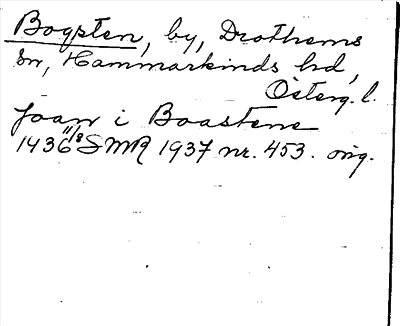 Bogsten, by, Drothems
sn, Hammarkinds hd,
Österg. l.
Joan i Boastene
1436 11/8 SMR 1937 nr. 453. orig.